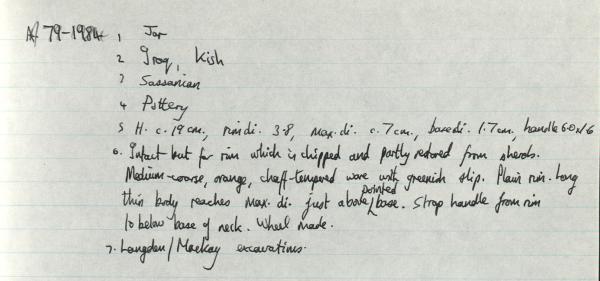 Af 79-1984 1 Jar
2 Iraq, Kish
3 Sassanian
4 Pottery
5 H. c. 19 cm., rim di. 3.8, max. di. c. 7 cm., base di. 1.7 cm, handle 6.0 x 1.6
6. Intact but for rim which is chipped and partly restored from sherds.
Medium-coarse, orange, chaff-tempered ware with greenish slip. Plain rim. Long
thin body reaches max. di. just above pointed base. Strap handle from rim
to below base of neck. Wheel made.
7. Langdon/Mackay excavations.